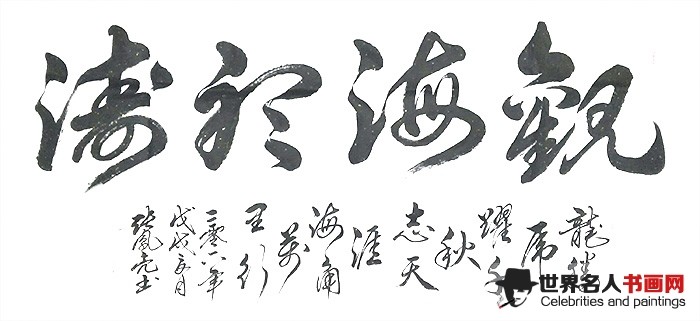 觀海聽濤
龍騰
虎
躍千
秋
志天
涯
海角
萬
里行
二零一八年
戊戌 月
世界名人书画网
Celebrities and paintings